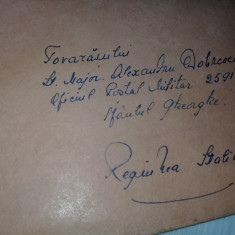 Tovarășului
Lt. Major. Alexandru Dobrescu
Oficiul Postal Militar 2591
Sfântul Gheorghe.
Regiunea